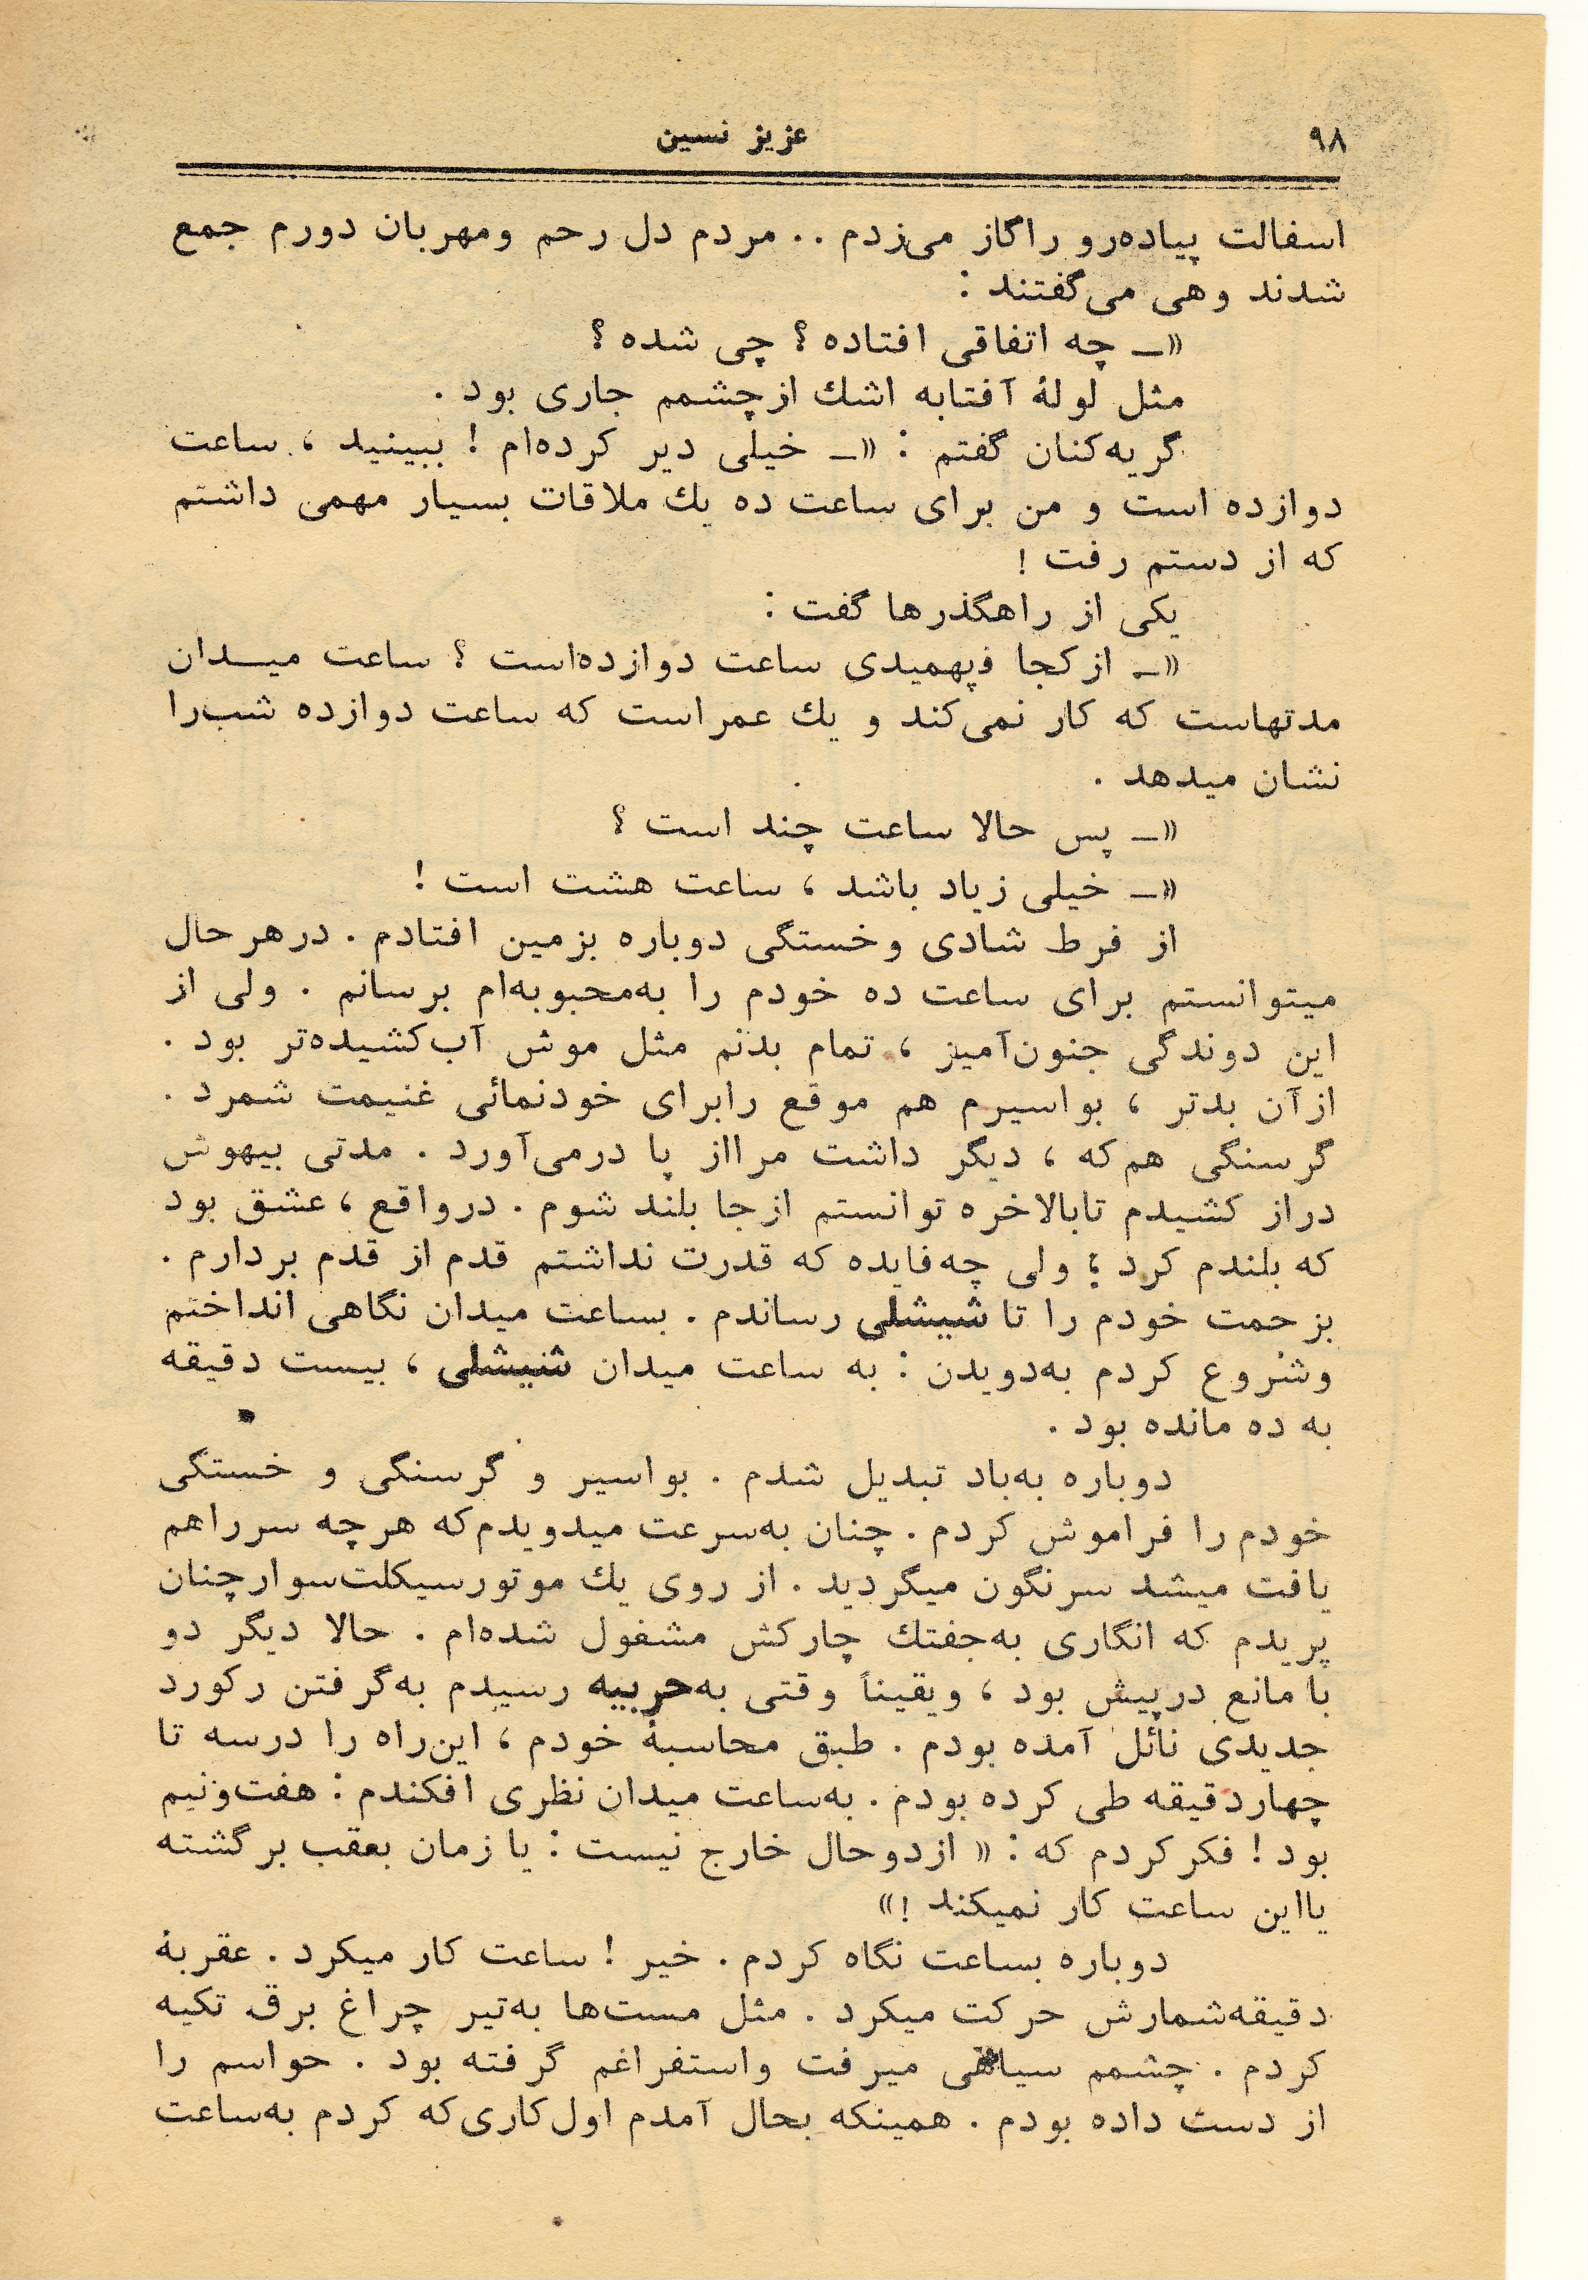 ۹۸
عزیز نسین
اسفالت پیاده‌رو را گاز می‌زدم .. مردم دل رحم ومهربان دورم جمع
شدند وهی می‌گفتند :
«ـ چه اتفاقی افتاده ؟ چی شده ؟
مثل لولۀ آفتابه اشك ازچشمم جاری بود .
گریه‌کنان گفتم : «ـ خیلی دیر کرده‌ام ! ببینید ، ساعت
دوازده است و من برای ساعت ده یك ملاقات بسیار مهمی داشتم
که از دستم رفت !
یکی از راهگذرها گفت :
«ـ ازکجا فهمیدی ساعت دوازده‌است ؟ ساعت میـدان
مدتهاست که کار نمی‌کند و یك عمراست که ساعت دوازده شب‌را
نشان میدهد .
«ـ پس حالا ساعت چند است ؟
«ـ خیلی زیاد باشد ، ساعت هشت است !
از فرط شادی وخستگی دوباره بزمین افتادم . درهرحال
میتوانستم برای ساعت ده خودم را به‌محبوبه‌ام برسانم . ولی از
این دوندگی جنون‌آمیز ، تمام بدنم مثل موش آب‌کشیده‌تر بود .
ازآن بدتر ، بواسیرم هم موقع رابرای خودنمائی غنیمت شمرد .
گرسنگی هم‌که ، دیگر داشت مرااز پا درمی‌آورد . مدتی بیهوش
دراز کشیدم تابالاخره توانستم ازجا بلند شوم . درواقع ، عشق بود
که بلندم کرد ؛ ولی چه‌فایده که قدرت نداشتم قدم از قدم بردارم .
بزحمت خودم را تا شیشلی رساندم . بساعت میدان نگاهی انداختم
وشروع کردم به‌دویدن : به ساعت میدان شیشلی ، بیست دقیقه
به ده مانده بود .
دوباره به‌باد تبدیل شدم . بواسیر و گرسنگی و خستگی
خودم را فراموش کردم . چنان به‌سرعت میدویدم‌که هرچه سرراهم
یافت میشد سرنگون میگردید . از روی یك موتورسیکلت‌سوارچنان
پریدم که انگاری به‌جفتك چارکش مشغول شده‌ام . حالا دیگر دو
با مانع درپیش بود ، ویقیناً وقتی به‌حربیه رسیدم به‌گرفتن رکورد
جدیدی نائل آمده بودم . طبق محاسبۀ خودم ، این‌راه را درسه تا
چهاردقیقه طی کرده بودم . به‌ساعت میدان نظری افکندم : هفت‌ونیم
بود ! فکرکردم که : « ازدوحال خارج نیست : یا زمان بعقب برگشته
یااین ساعت کار نمیکند !»
دوباره بساعت نگاه کردم . خیر ! ساعت کار میکرد . عقربۀ
دقیقه‌شمارش حرکت میکرد . مثل مست‌ها به‌تیر چراغ برق تکیه
کردم . چشمم سیاهی میرفت واستفراغم گرفته بود . حواسم را
از دست داده بودم . همینکه بحال آمدم اول‌کاری‌که کردم به‌ساعت